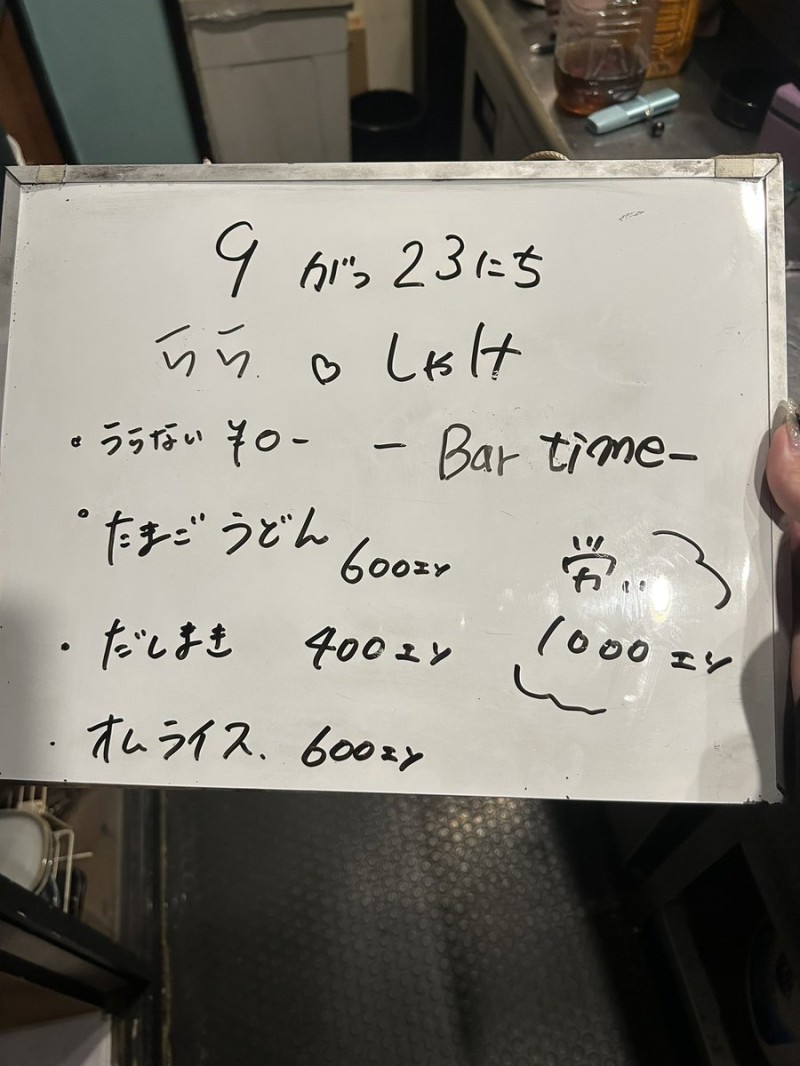 9がつ23にち
らら♡しゃけ
・うらない ¥0-
- Bar time -
・たまごうどん 600エン
・だしまき 400エン
1000エン
・オムライス. 600エン